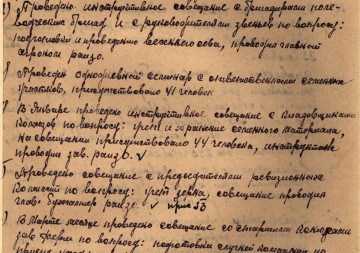 Проведено инструктивное совещание с бригадирами поле-
водческих бригад и с руководителями звеньев по вопросу:
подготовки и проведению весеннего сева, проводил главный
агроном райзо.
Проведен однодневный семинар с ответственными семенных
участков, присутствовало 41 человек
В Январе проведено инструктивное совещание с кладовщиками
колхозов по вопросу: учет и хранение семенного материала,
на совещании присутствовало 44 человека, инструктаж
проводил зав. райзо. ✓
Проведено совещание с председателями ревизионных
Комиссий по вопросу: учет зерна, совещание проводил
глав. бухгалтер райзо. ✓
В Марте месяце проведено совещание со старшими конюхами
зав фермы по вопросу: подготовки случной компании